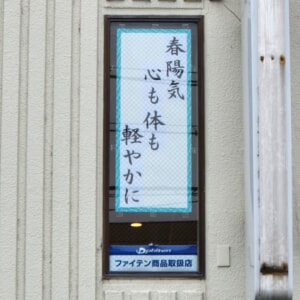 春陽気
心も体も
軽やかに
phiten
ファイテン商品取扱店